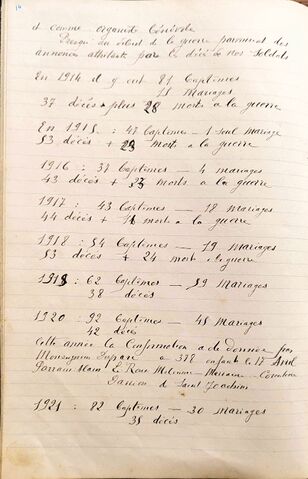 14
et comme organiste bénévole
Presque au début de la guerre parvinrent des
annonces attristante par le décè de nos soldats
En 1914 il y eut 81 Captêmes
15 Mariages
37 décès + plus 28 morts a la guerre
En 1915 : 47 Captêmes – 1 seul mariage
53 décès + 23 morts a la guerre
1916 : 37 Captêmes – 4 mariages
43 décès + morts a la guerre
1917 : 43 Captêmes – 18 mariages
44 décès + morts a la guerre
1918 : 54 Captêmes – 19 mariages
53 décès + 24 mort a la guerre
1919 : 62 Captêmes – 59 mariages
38 décès
1920 : 92 Captêmes – 45 Mariages
42 décès
Cette année la Confirmation a été donnée par
Monseigneur a 378 enfants le 17 Avril
Parrain Marraine
de Saint Joachim
1921 : 82 Captêmes – 30 mariages
35 décès